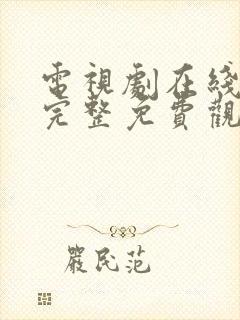 電視劇在綫
完整免費觀
嚴民范